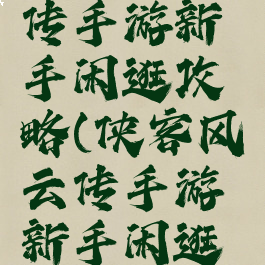 传手游新
手闲逛攻
略(侠客风
云传手游
新手闲逛